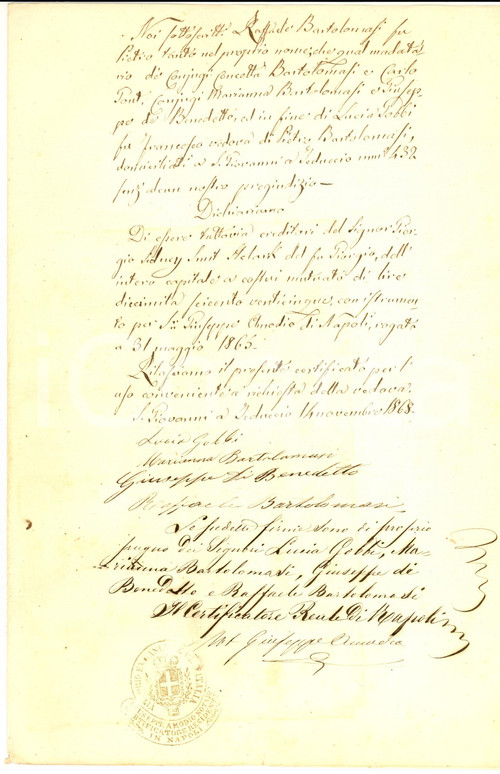 Noi sottoscritti Raffaele Bartolomasi fu
Pietro tanto nel proprio nome, che qual mandata-
rio de' Conjugi Concetta Bartolomasi e Carlo
Ponti, Conjugi Marianna Bartolomasi e Giusep-
pe de Benedetto, ed in fine di Lucia Gobbi
fu Francesco vedova di Pietro Bartolomasi,
domiciliati a S. Giovanni a Teduccio num.º 432
senz'alcun nostro pregiudizio —
Dichiariamo
Di essere tuttavia creditori del Signor Gior-
gio Sidney Smit del fu Giorgio, dell'
intero capitale a costui mutuato di lire
diecimila seicento venticinque, con istrumen-
to per Sr. Giuseppe Amodio di Napoli, rogato
a 31 maggio 1865.
Rilasciamo il presente certificato per l'
uso conveniente a richiesta della vedova.
S. Giovanni a Teduccio 14 novembre 1868.
Lucia Gobbi
Marianna Bartolomasi
Giuseppe di Benedetto
Raffaele Bartolomasi
Le sudette firme sono di proprio
pugno dei Signori Lucia Gobbi, Ma-
rianna Bartolomasi, Giuseppe di
Benedetto e Raffaele Bartolomasi
Il Certificatore Reale Di Napoli
Not Giuseppe Amodio
GIUSEPPE AMODIO NOTAIO
CERTIFICATORE RESIDENTE
IN NAPOLI